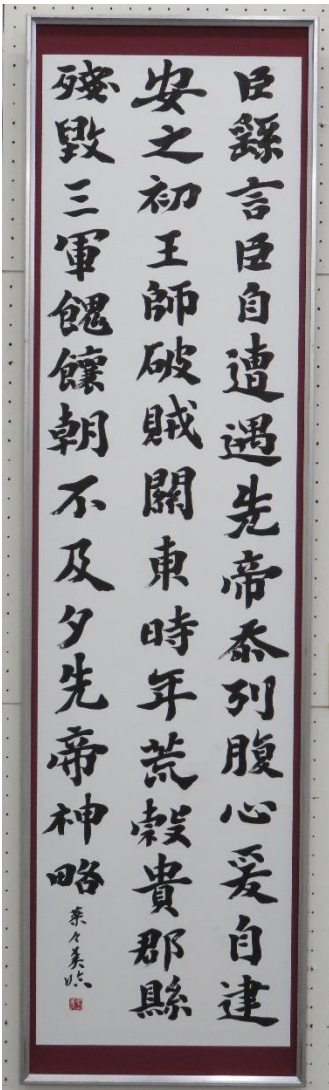 臣繇言臣自遭遇先帝忝列腹心爰自建
安之初王師破賊關東時年荒穀貴郡縣
殘毀三軍餽饟朝不及夕先帝神略
菜々美臨